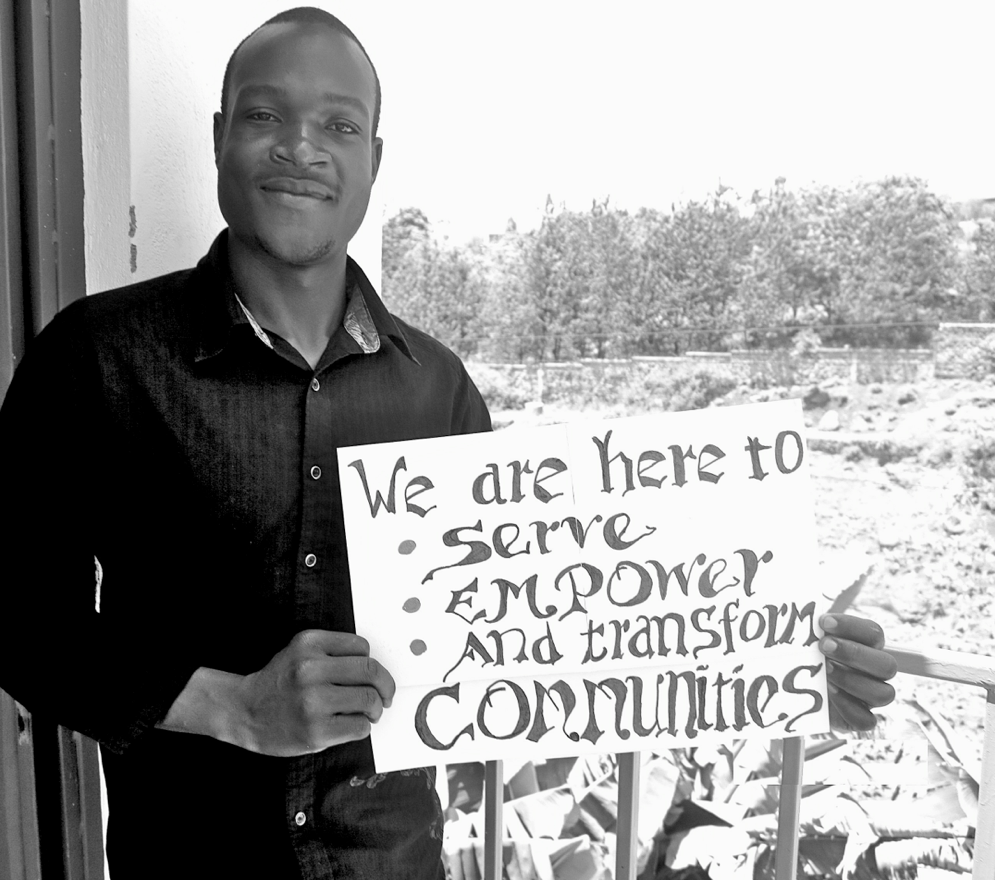 We are here to
• Serve
• EMPOWer
• And transform
COMMUNities